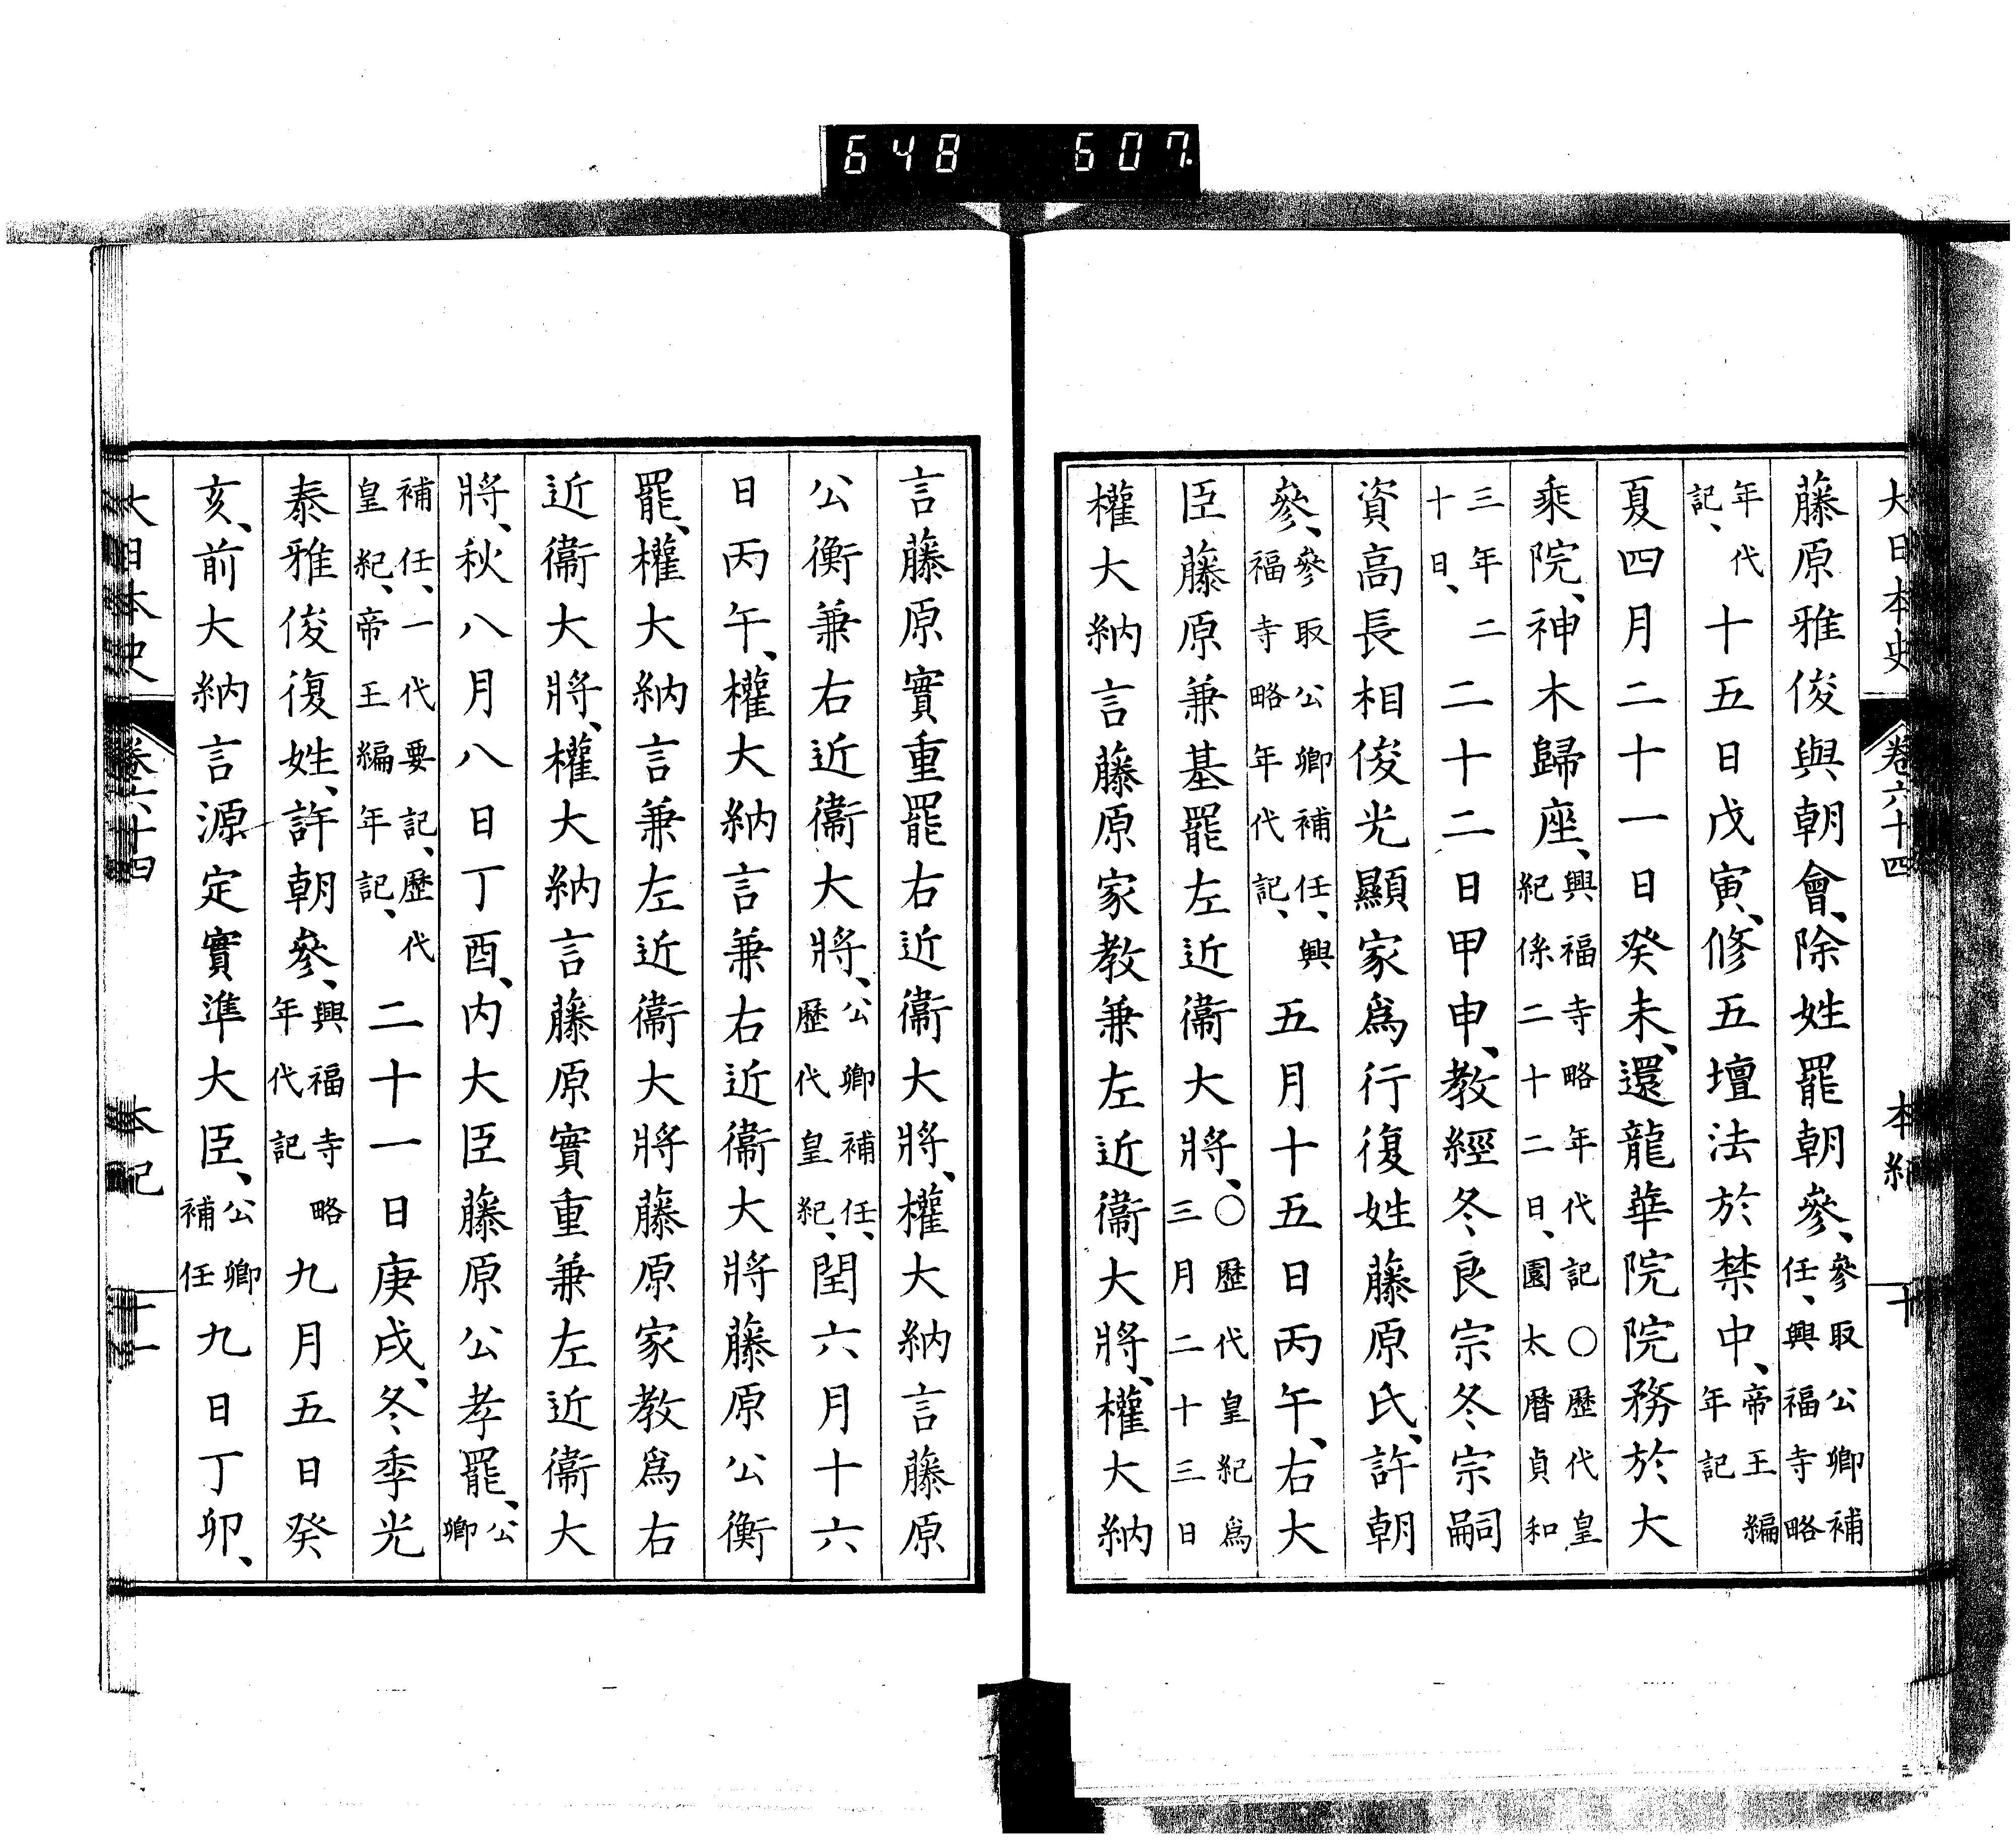 648 607.
大日本史 卷六十四 本紀 十
藤原雅俊與朝會、除姓罷朝參、參取公卿補任、興福寺略
年代記、十五日戊寅、修五壇法於禁中、帝王編年記
夏四月二十一日癸未、還龍華院院務於大
乘院、神木歸座、興福寺略年代記〇歷代皇紀係二十二日、園太曆貞和
三年二十日、二十二日甲申、教經冬良宗冬宗嗣
資高長相俊光顯家爲行復姓藤原氏、許朝
參、參取公卿補任、興福寺略年代記、五月十五日丙午、右大
臣藤原兼基罷左近衞大將、〇歷代皇紀爲三月二十三日
權大納言藤原家教兼左近衞大將、權大納
言藤原實重罷右近衞大將、權大納言藤原
公衡兼右近衞大將、公卿補任、歷代皇紀、閏六月十六
日丙午、權大納言兼右近衞大將藤原公衡
罷、權大納言兼左近衞大將藤原家教爲右
近衞大將、權大納言藤原實重兼左近衞大
將、秋八月八日丁酉、內大臣藤原公孝罷、公卿
補任、一代要記、歷代皇紀、帝王編年記、二十一日庚戌、冬季光
泰雅俊復姓、許朝參、興福寺略年代記九月五日癸
亥、前大納言源定實準大臣、公卿補任九日丁卯、
大日本史 卷六十四 本紀 十一